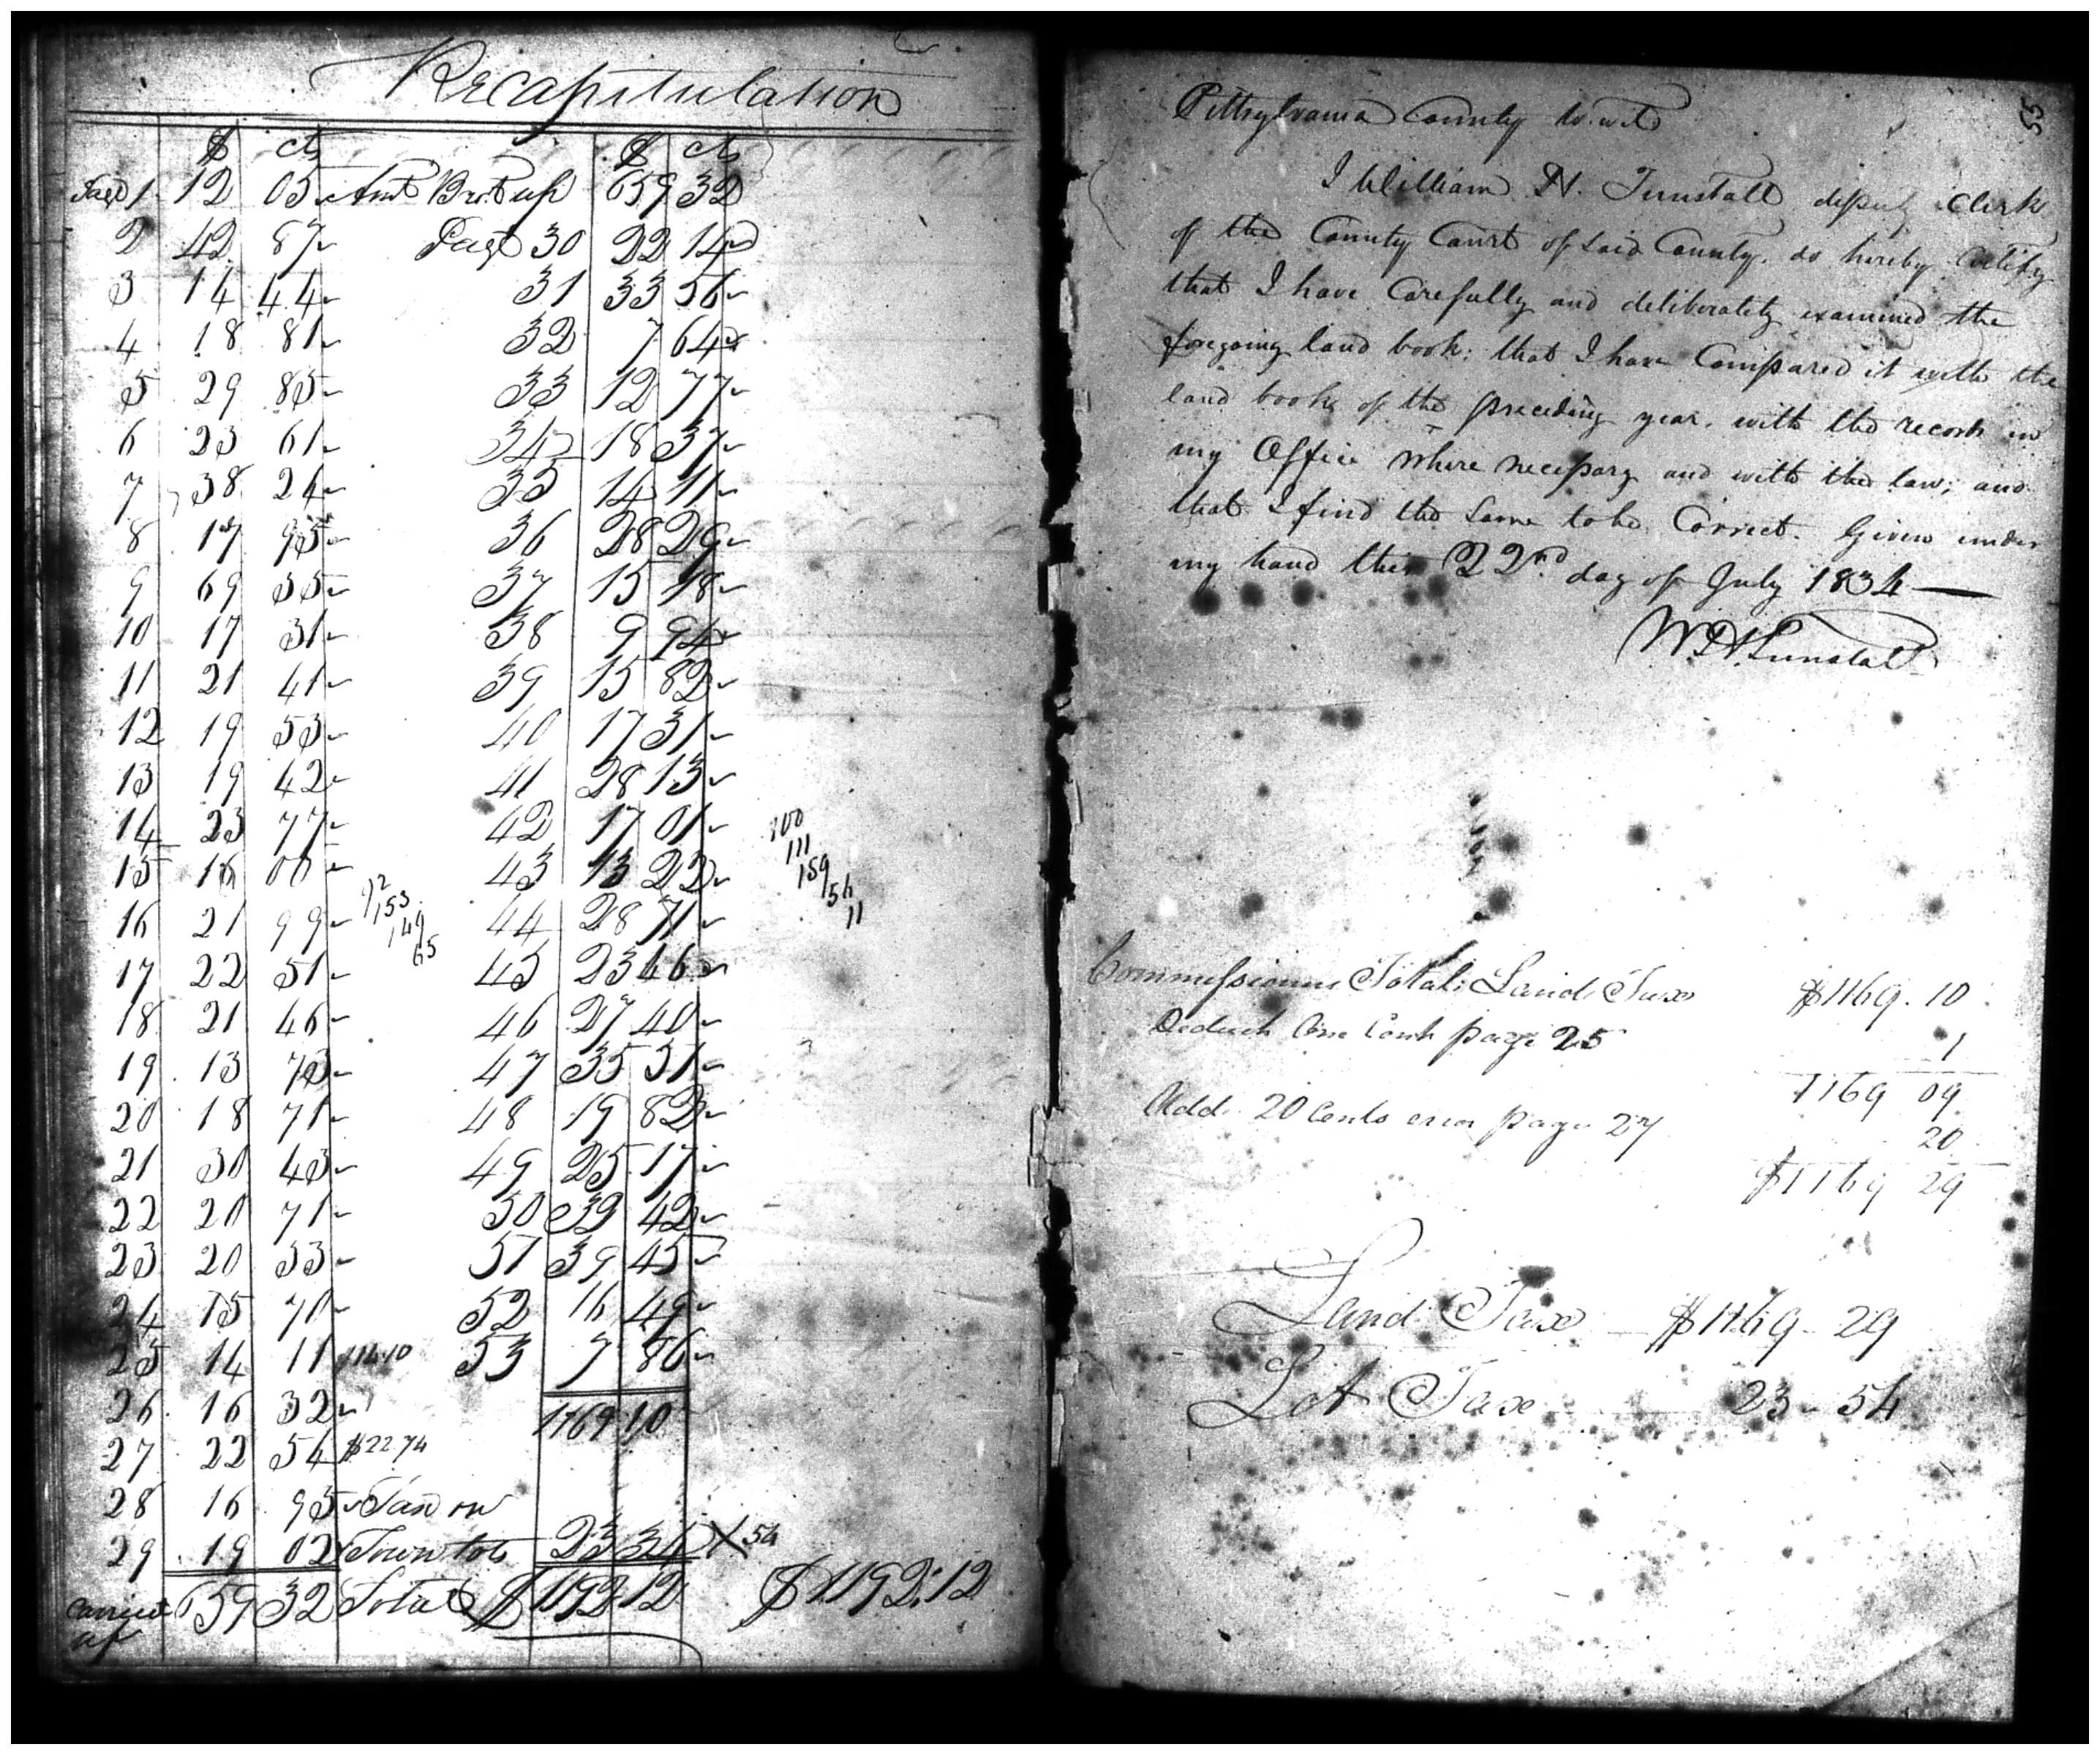 Recapitulation
$ cts $ cts
Page 1 12 05 Amt Brot up 659 32
2 42 87 Page 30 22 14
3 14 44 31 33 56
4 18 81 32 7 64
5 29 85 33 12 77
6 23 61 34 18 37
7 38 24 35 14 11
8 17 95 36 28 29
9 69 35 37 15 18
10 17 31 38 9 94
11 21 41 39 15 82
12 19 53 40 17 31
13 19 42 41 28 13
14 23 77 42 17 01
15 16 00 43 13 22
16 21 99 44 28 71
17 22 51 45 23 46
18 21 46 46 27 40
19 13 73 47 35 51
20 18 71 48 19 82
21 30 43 49 25 17
22 20 71 50 39 42
23 20 53 51 39 45
24 15 70 52 16 49
25 14 11 $14.10 53 7 86
26 16 32 1169 10
27 22 54 $22 74
28 16 95 Tax on
29 19 02 Town lots 23 34 X 54
carried up 659 32 Total $ 1192 12 $1192.12
92
153
149
65
100
111
159
154
11
55
Pittsylvania County to wit
I William H. Tunstall deputy Clerk
of the County Court of said County, do hereby Certify
that I have Carefully and deliberately examined the
foregoing land book; that I have Compared it with the
land book of the preceding year, with the records in
my Office where necessary and with the law; and
that I find the same to be Correct. Given under
my hand this 22nd day of July 1834
W H Tunstall
Commissioners Total Land Tax $1169.10
Deduct One Cent page 25 1
1169 09
Add 20 Cents error page 27 20
$1169 29
Land Tax $1169-29
Lot Tax 23-54